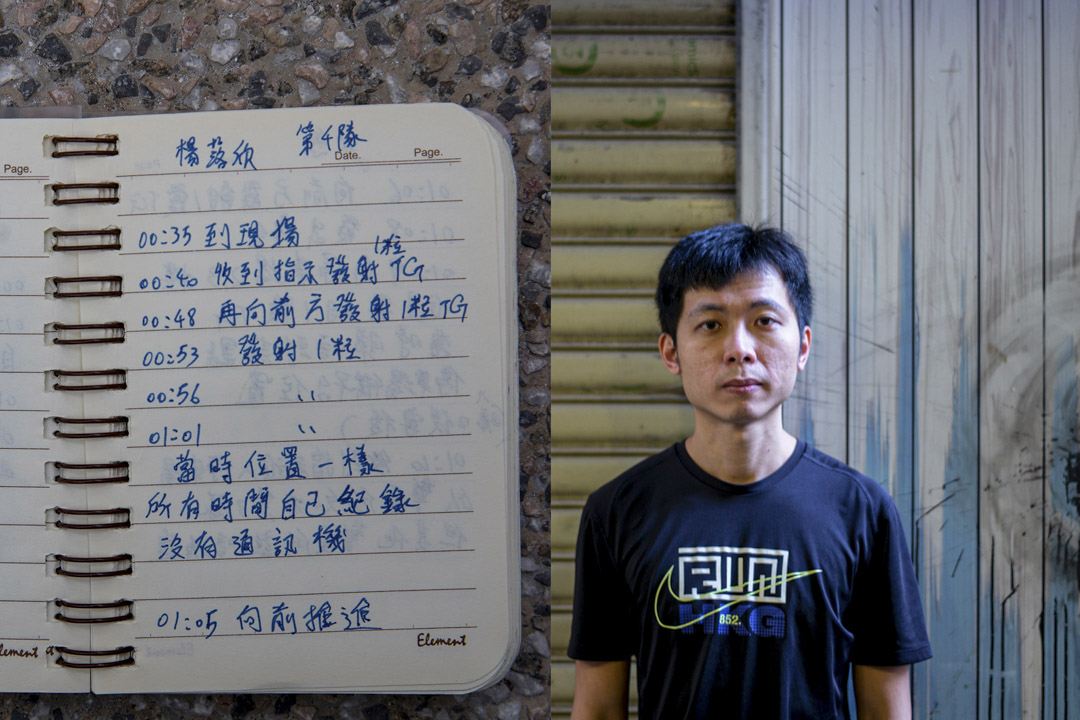 Page.
楊落欣 第4隊
Date. Page.
00:35 到現場
00:40 收到指示發射1粒TG
00:48 再向前方發射1粒TG
00:53 發射1粒
00:56 〃
01:01 〃
當時位置一樣
所有時間自己紀錄
沒有通訊機
01:05 向前推進
Element
RUN
HKG
852.